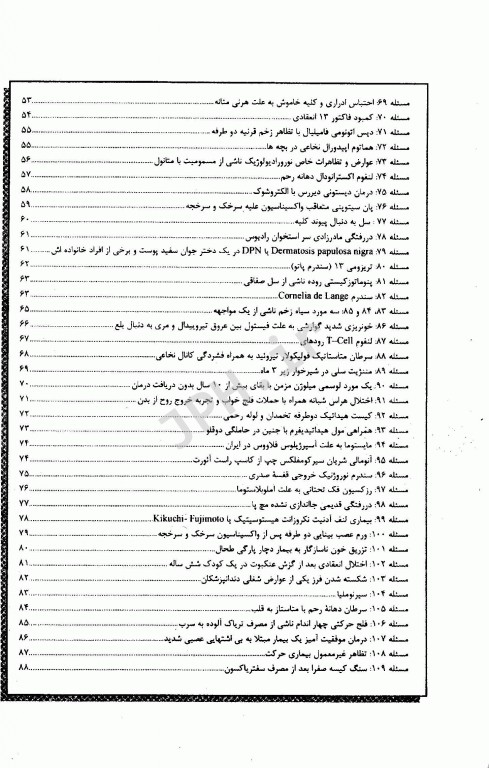 مسئله ۶۹: احتباس ادراری و کلیه خاموش به علت هرنی مثانه...۵۳
مسئله ۷۰: کمبود فاکتور ۱۳ انعقادی...۵۴
مسئله ۷۱: دیس اتونومی فامیلیال با تظاهر زخم قرنیه دو طرفه...۵۵
مسئله ۷۲: هماتوم اپیدورال نخاعی در بچه ها...۵۵
مسئله ۷۳: عوارض و تظاهرات خاص نورورادیولوژیک ناشی از مسمومیت با متانول...۵۶
مسئله ۷۴: لنفوم اکسترانودال دهانه رحم...۵۷
مسئله ۷۵: درمان دیستونی دیررس با الکتروشوک...۵۸
مسئله ۷۶: پان سیتوپنی متعاقب واکسیناسیون علیه سرخک و سرخجه...۵۹
مسئله ۷۷: سل به دنبال پیوند کلیه...۶۰
مسئله ۷۸: دررفتگی مادرزادی سر استخوان رادیوس...۶۱
مسئله ۷۹: Dermatosis papulosa nigra یا DPN در یک دختر جوان سفید پوست و برخی از افراد خانواده اش...۶۱
مسئله ۸۰: تریزومی ۱۳ (سندرم پاتو)...۶۲
مسئله ۸۱: پنوماتوزکیستی روده ناشی از سل صفاقی...۶۳
مسئله ۸۲: سندرم Cornelia de Lange...۶۴
مسئله ۸۳، ۸۴ و ۸۵: سه مورد سیاه زخم ناشی از یک مواجهه...۶۵
مسئله ۸۶: خونریزی شدید گوارشی به علت فیستول بین عروق تیروییدال و مری به دنبال بلع...۶۶
مسئله ۸۷: لنفوم T-Cell روده‌ای...۶۷
مسئله ۸۸: سرطان متاستاتیک فولیکولار تیروئید به همراه فشردگی کانال نخاعی...۶۸
مسئله ۸۹: مننژیت سلی در شیرخوار زیر ۳ ماه...۶۹
مسئله ۹۰: یک مورد لوسمی میلوژن مزمن با بقای بیش از ۱۰ سال بدون دریافت درمان...۷۰
مسئله ۹۱: اختلال هراس شبانه همراه با حملات فلج خواب و تجربه خروج روح از بدن...۷۱
مسئله ۹۲: کیست هیداتیک دوطرفه تخمدان و لوله رحمی...۷۲
مسئله ۹۳: همراهی مول هیداتیدیفرم با جنین در حاملگی دوقلو...۷۳
مسئله ۹۴: مایستوما به علت آسپرژیلوس فلاووس در ایران...۷۴
مسئله ۹۵: آنومالی شریان سیرکومفلکس چپ از کاسپ راست آئورت...۷۴
مسئله ۹۶: سندرم نوروژنیک خروجی قفسهٔ صدری...۷۵
مسئله ۹۷: رزکسیون فک تحتانی به علت املوبلاستوما...۷۶
مسئله ۹۸: دررفتگی قدیمی جااندازی نشده مچ پا...۷۷
مسئله ۹۹: بیماری لنف آدنیت نکروزانت هیستوسیتیک یا Kikuchi- Fujimoto...۷۸
مسئله ۱۰۰: ورم عصب بینایی دو طرفه پس از واکسیناسیون سرخک و سرخجه...۷۹
مسئله ۱۰۱: تزریق خون ناسازگار به بیمار دچار پارگی طحال...۸۰
مسئله ۱۰۲: اختلال انعقادی بعد از گزش عنکبوت در یک کودک شش ساله...۸۱
مسئله ۱۰۳: شکسته شدن فرز یکی از عوارض شغلی دندانپزشکان...۸۲
مسئله ۱۰۴: سیرنوملیا...۸۳
مسئله ۱۰۵: سرطان دهانهٔ رحم با متاستاز به قلب...۸۴
مسئله ۱۰۶: فلج حرکتی چهار اندام ناشی از مصرف تریاک آلوده به سرب...۸۵
مسئله ۱۰۷: درمان موفقیت آمیز یک بیمار مبتلا به بی اشتهایی عصبی شدید...۸۶
مسئله ۱۰۸: تظاهر غیرمعمول بیماری حرکت...۸۷
مسئله ۱۰۹: سنگ کیسه صفرا بعد از مصرف سفتریاکسون...۸۸